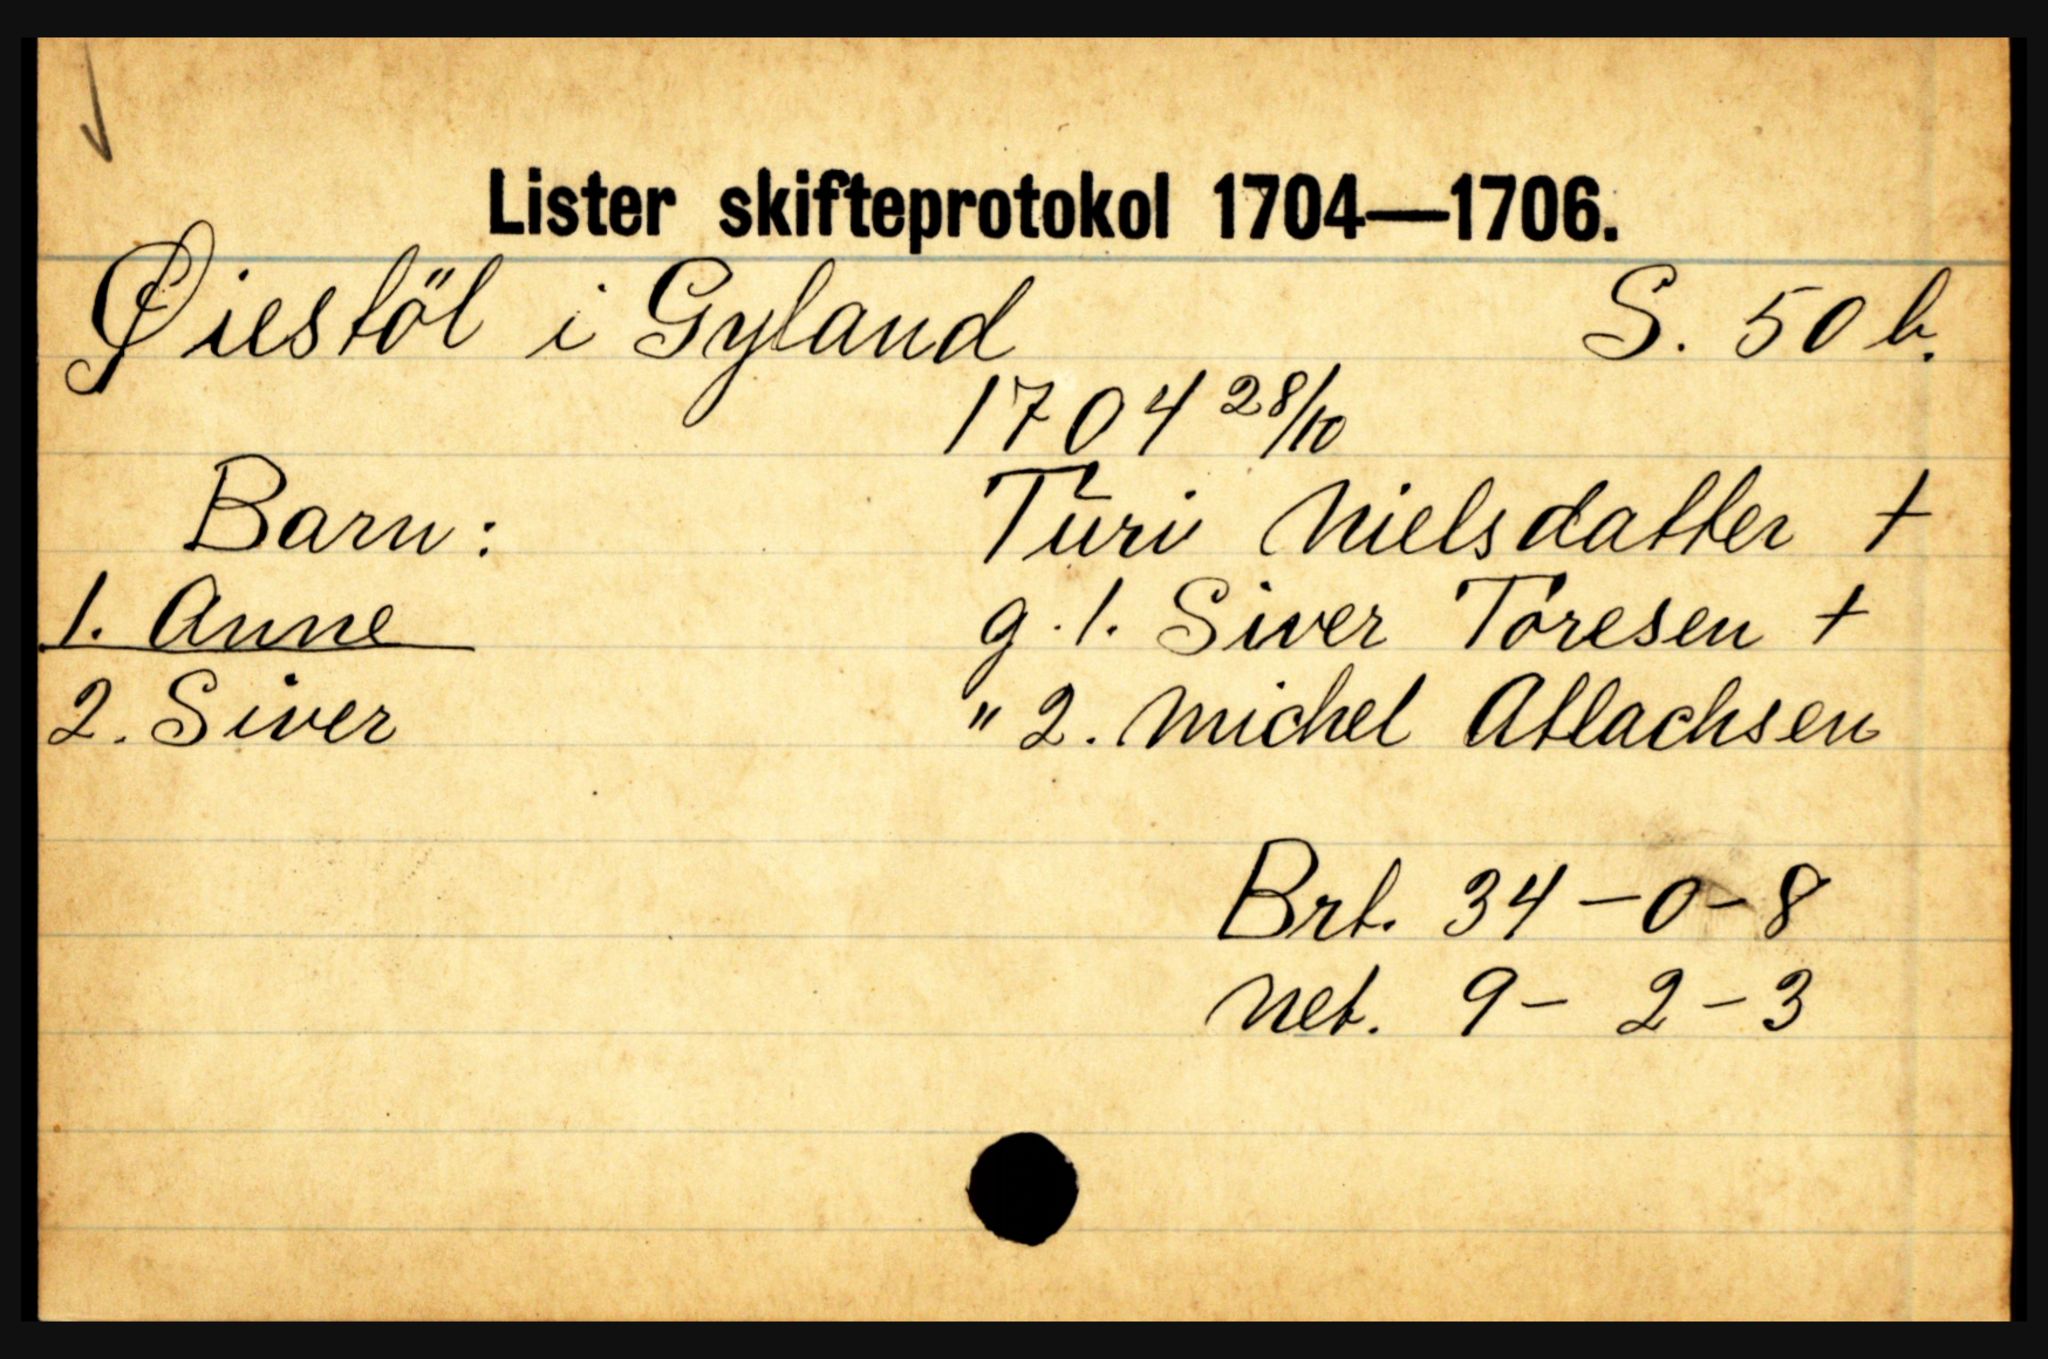 Lister skifteprotokol 1704—1706.
Øiestöl i Gyland S. 50 b.
1704 28/10
Barn: Turi Nielsdatter †
1. Anne g. 1. Siver Toresen †
2. Siver " 2. Michel Atlachsen
Brt. 34 – 0 – 8
Net. 9 – 2 – 3